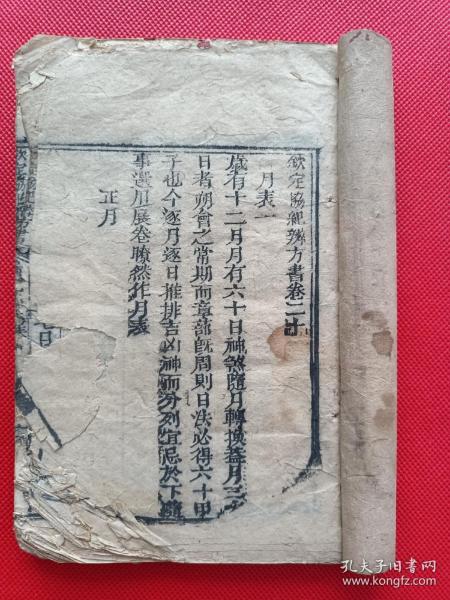 欽定協紀辨方書卷二十
月表一
歲有十二月月有六十日神煞隨月轉換蓋月三
日者朔會之常期而章蔀旣周則日法必得六十甲
子也今逐月逐日推排吉凶神而分列宜忌於下隨
事選用展卷瞭然作月表
正月
孔夫子旧书网
www.kongfz.com